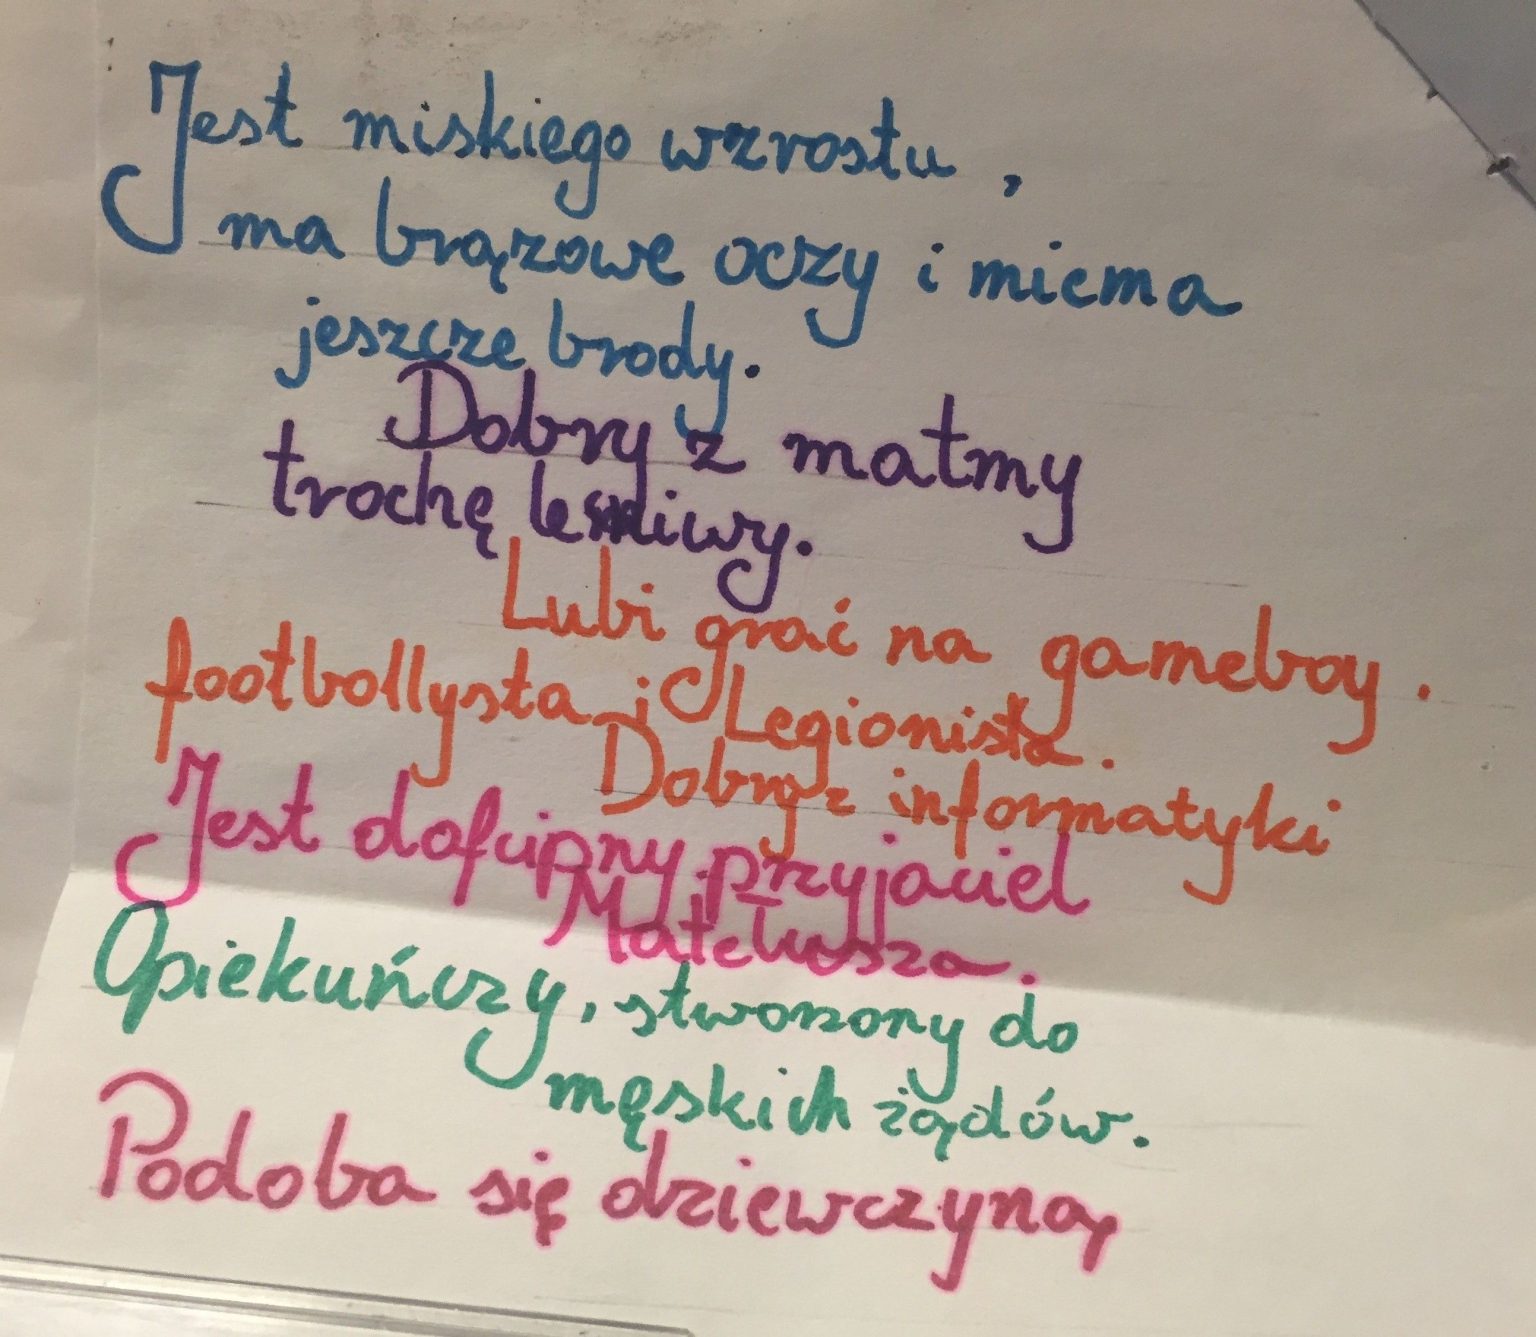 Jest miskiego wzrostu,
ma brązowe oczy i miema
jeszcze brody.
Dobry z matmy
trochę leniwy.
Lubi grać na gameboy.
footbollysta i Legionista.
Dobry z informatyki
Jest dofcipny. przyjaciel
Mateusza.
Opiekuńczy, stworzony do
męskich żądów.
Podoba się dziewczyną